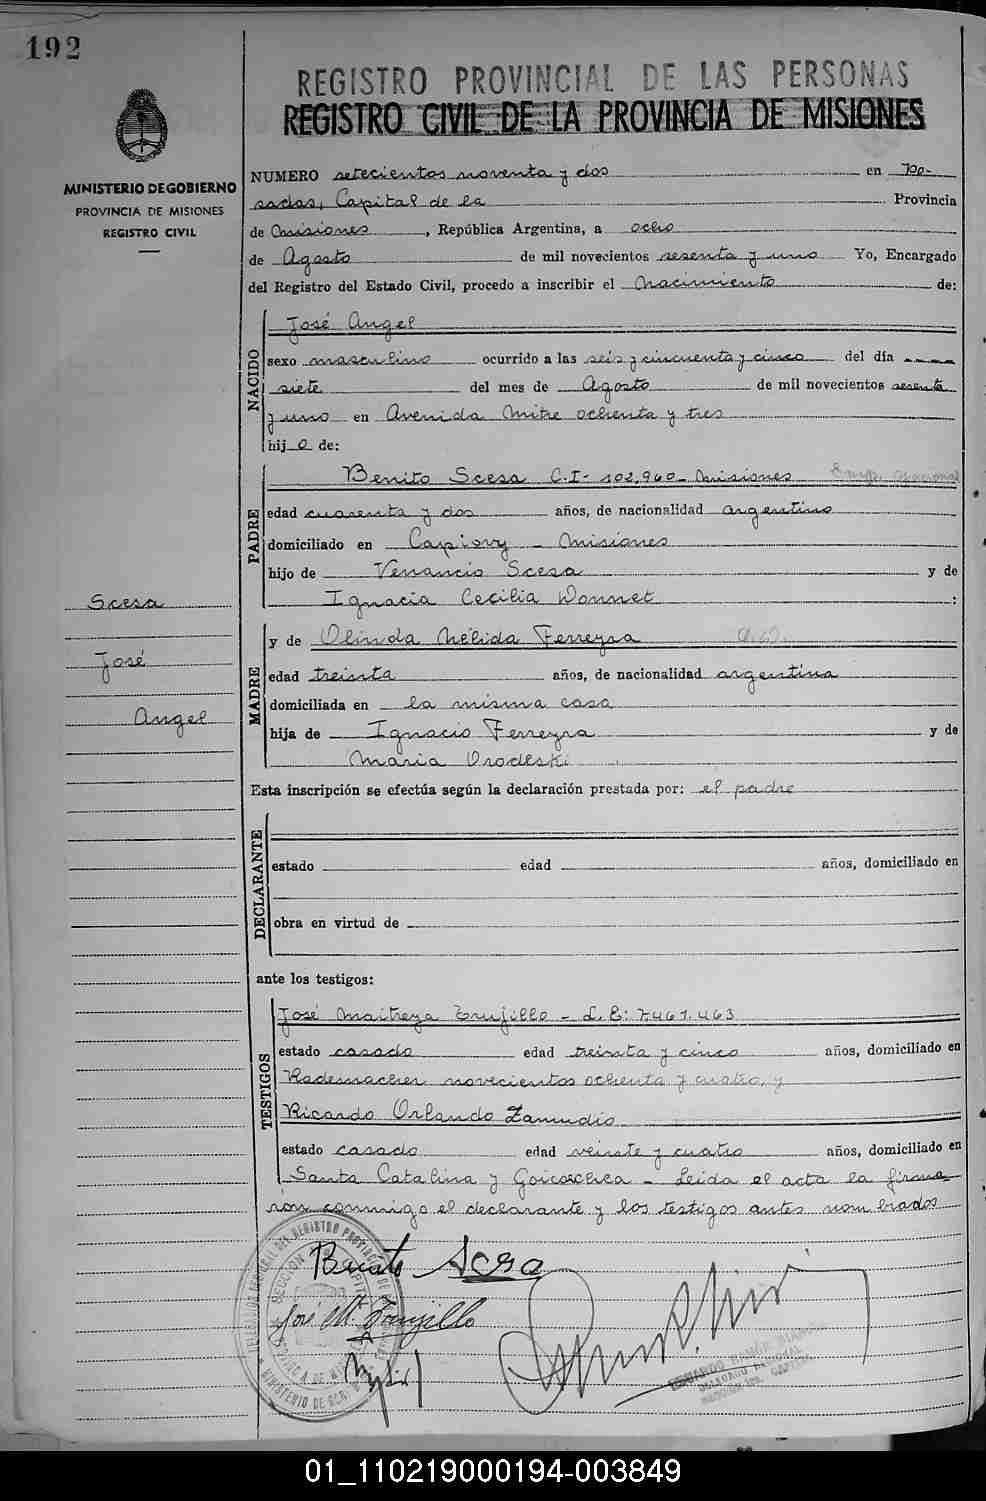 192
REGISTRO PROVINCIAL DE LAS PERSONAS
REGISTRO CIVIL DE LA PROVINCIA DE MISIONES
MINISTERIO DE GOBIERNO
PROVINCIA DE MISIONES
REGISTRO CIVIL
NUMERO setecientos noventa y dos en Po-
sadas, Capital de la Provincia
de Misiones, República Argentina, a ocho
de Agosto de mil novecientos sesenta y uno Yo, Encargado
del Registro del Estado Civil, procedo a inscribir el Nacimiento de:
NACIDO
José Angel
sexo masculino ocurrido a las seis y cincuenta y cinco del día
siete del mes de Agosto de mil novecientos sesenta
y uno en Avenida Mitre ochenta y tres
hijo de:
PADRE
Benito Scesa C.I- 102.960- Misiones
edad cuarenta y dos años, de nacionalidad argentino
domiciliado en Capiovy - Misiones
hijo de Venancio Scesa y de
Ignacia Cecilia Donnet :
Scesa
José
Angel
MADRE
y de Olinda Nélida Ferreyra
edad treinta años, de nacionalidad argentina
domiciliada en la misma casa
hija de Ignacio Ferreyra y de
Maria
Esta inscripción se efectúa según la declaración prestada por: el padre
DECLARANTE
estado edad años, domiciliado en
obra en virtud de
ante los testigos:
TESTIGOS
José Maitreya Trujillo - L.E: 7.461.463
estado casado edad treinta y cinco años, domiciliado en
Rademacher novecientos ochenta y cuatro, y
Ricardo Orlando Zamudio
estado casado edad veinte y cuatro años, domiciliado en
Santa Catalina y Goicochea - Leida el acta la firma-
rón conmigo el declarante y los testigos antes nombrados
Benito Scesa
José M. Trujillo
01_110219000194-003849